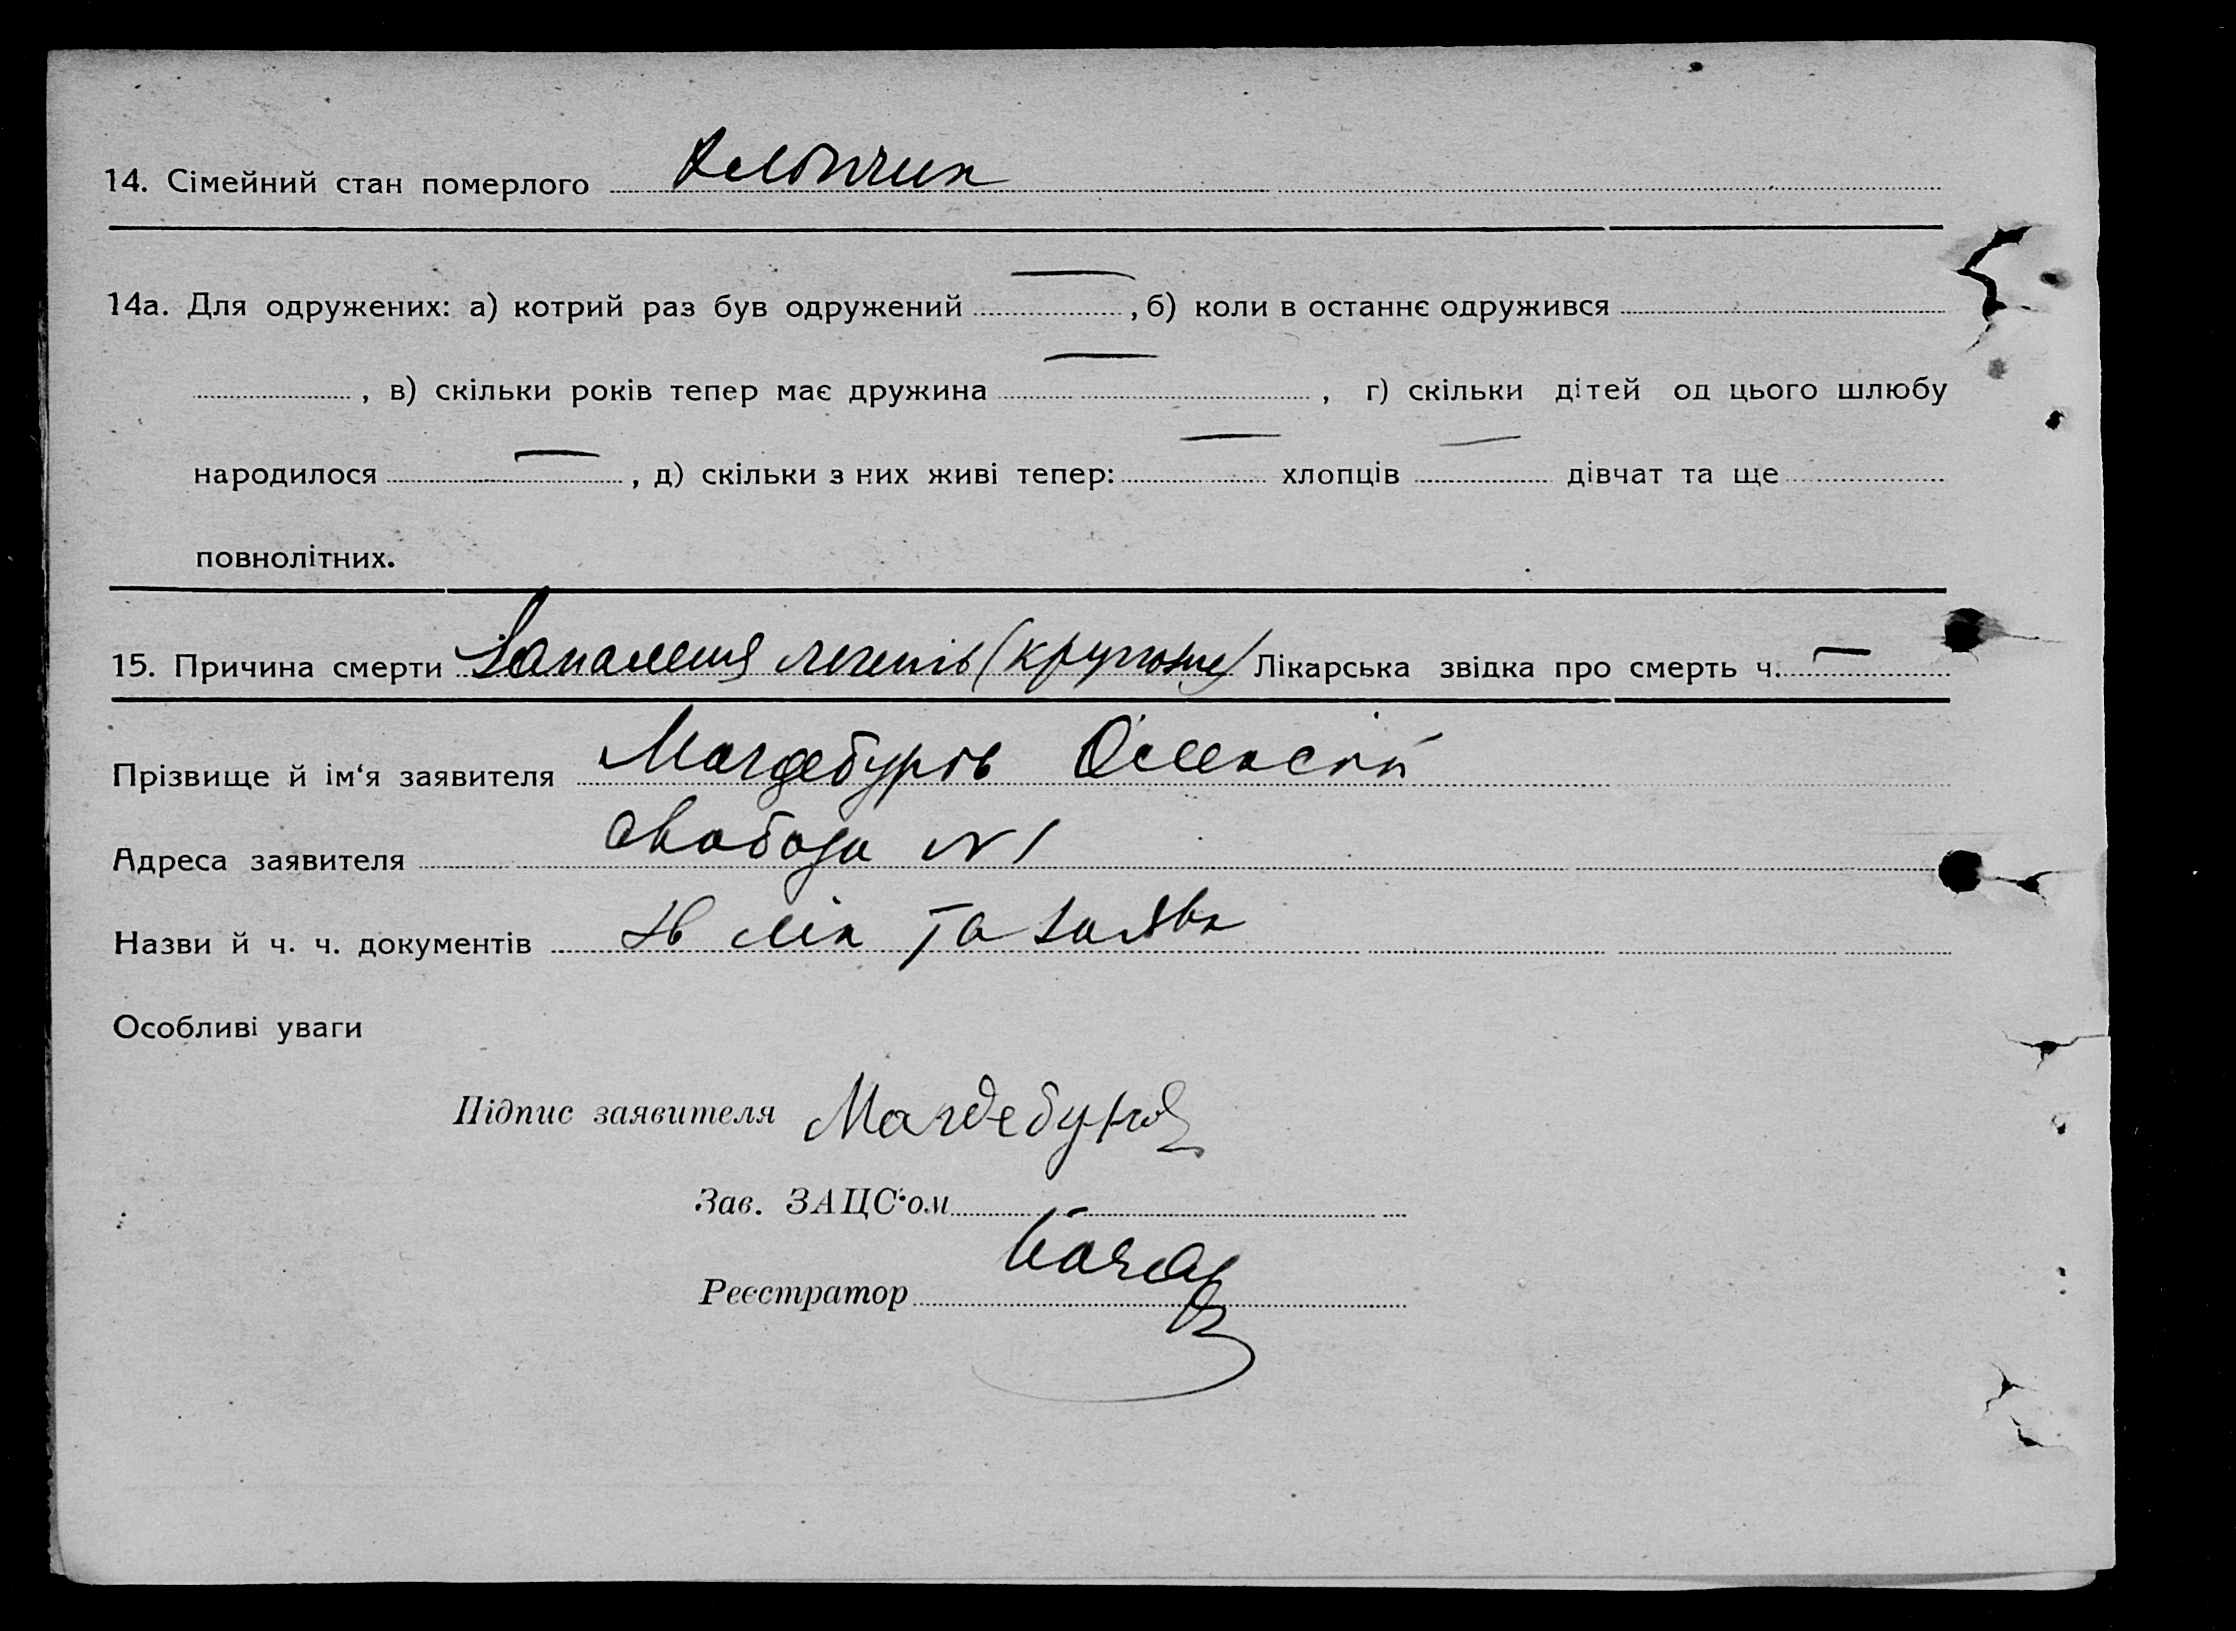 14. Сімейний стан померлого Хлопчик
14а. Для одружених: а) котрий раз був одружений —, б) коли в останнє одружився
, в) скільки років тепер має дружина —, г) скільки дітей од цього шлюбу
народилося —, д) скільки з них живі тепер: — хлопців — дівчат та ще
повнолітних.
15. Причина смерти Запалення легенів (крупозне) Лікарська звідка про смерть ч. —
Прізвище й ім‘я заявителя Магдебурів Олексій
Адреса заявителя Свобода N 1
Назви й ч. ч. документів лік та заява
Особливі уваги
Підпис заявителя Магдебуров
Зав. ЗАЦС‘ом
Реєстратор